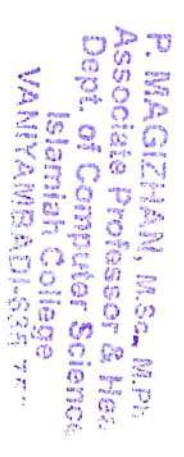 P. MAGIZHAN, M.Sc., M.Ph
Associate Professor & He
Dept. of Computer Science
Islamiah College
VANIYAMBADI-635